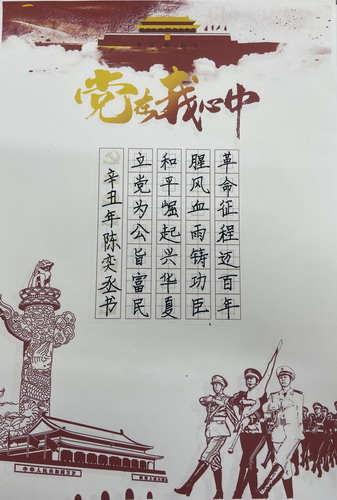 党在我心中
革命征程迈百年
腥风血雨铸功臣
和平崛起兴华夏
立党为公旨富民
辛丑年陈奕丞书
中华人民共和国万岁